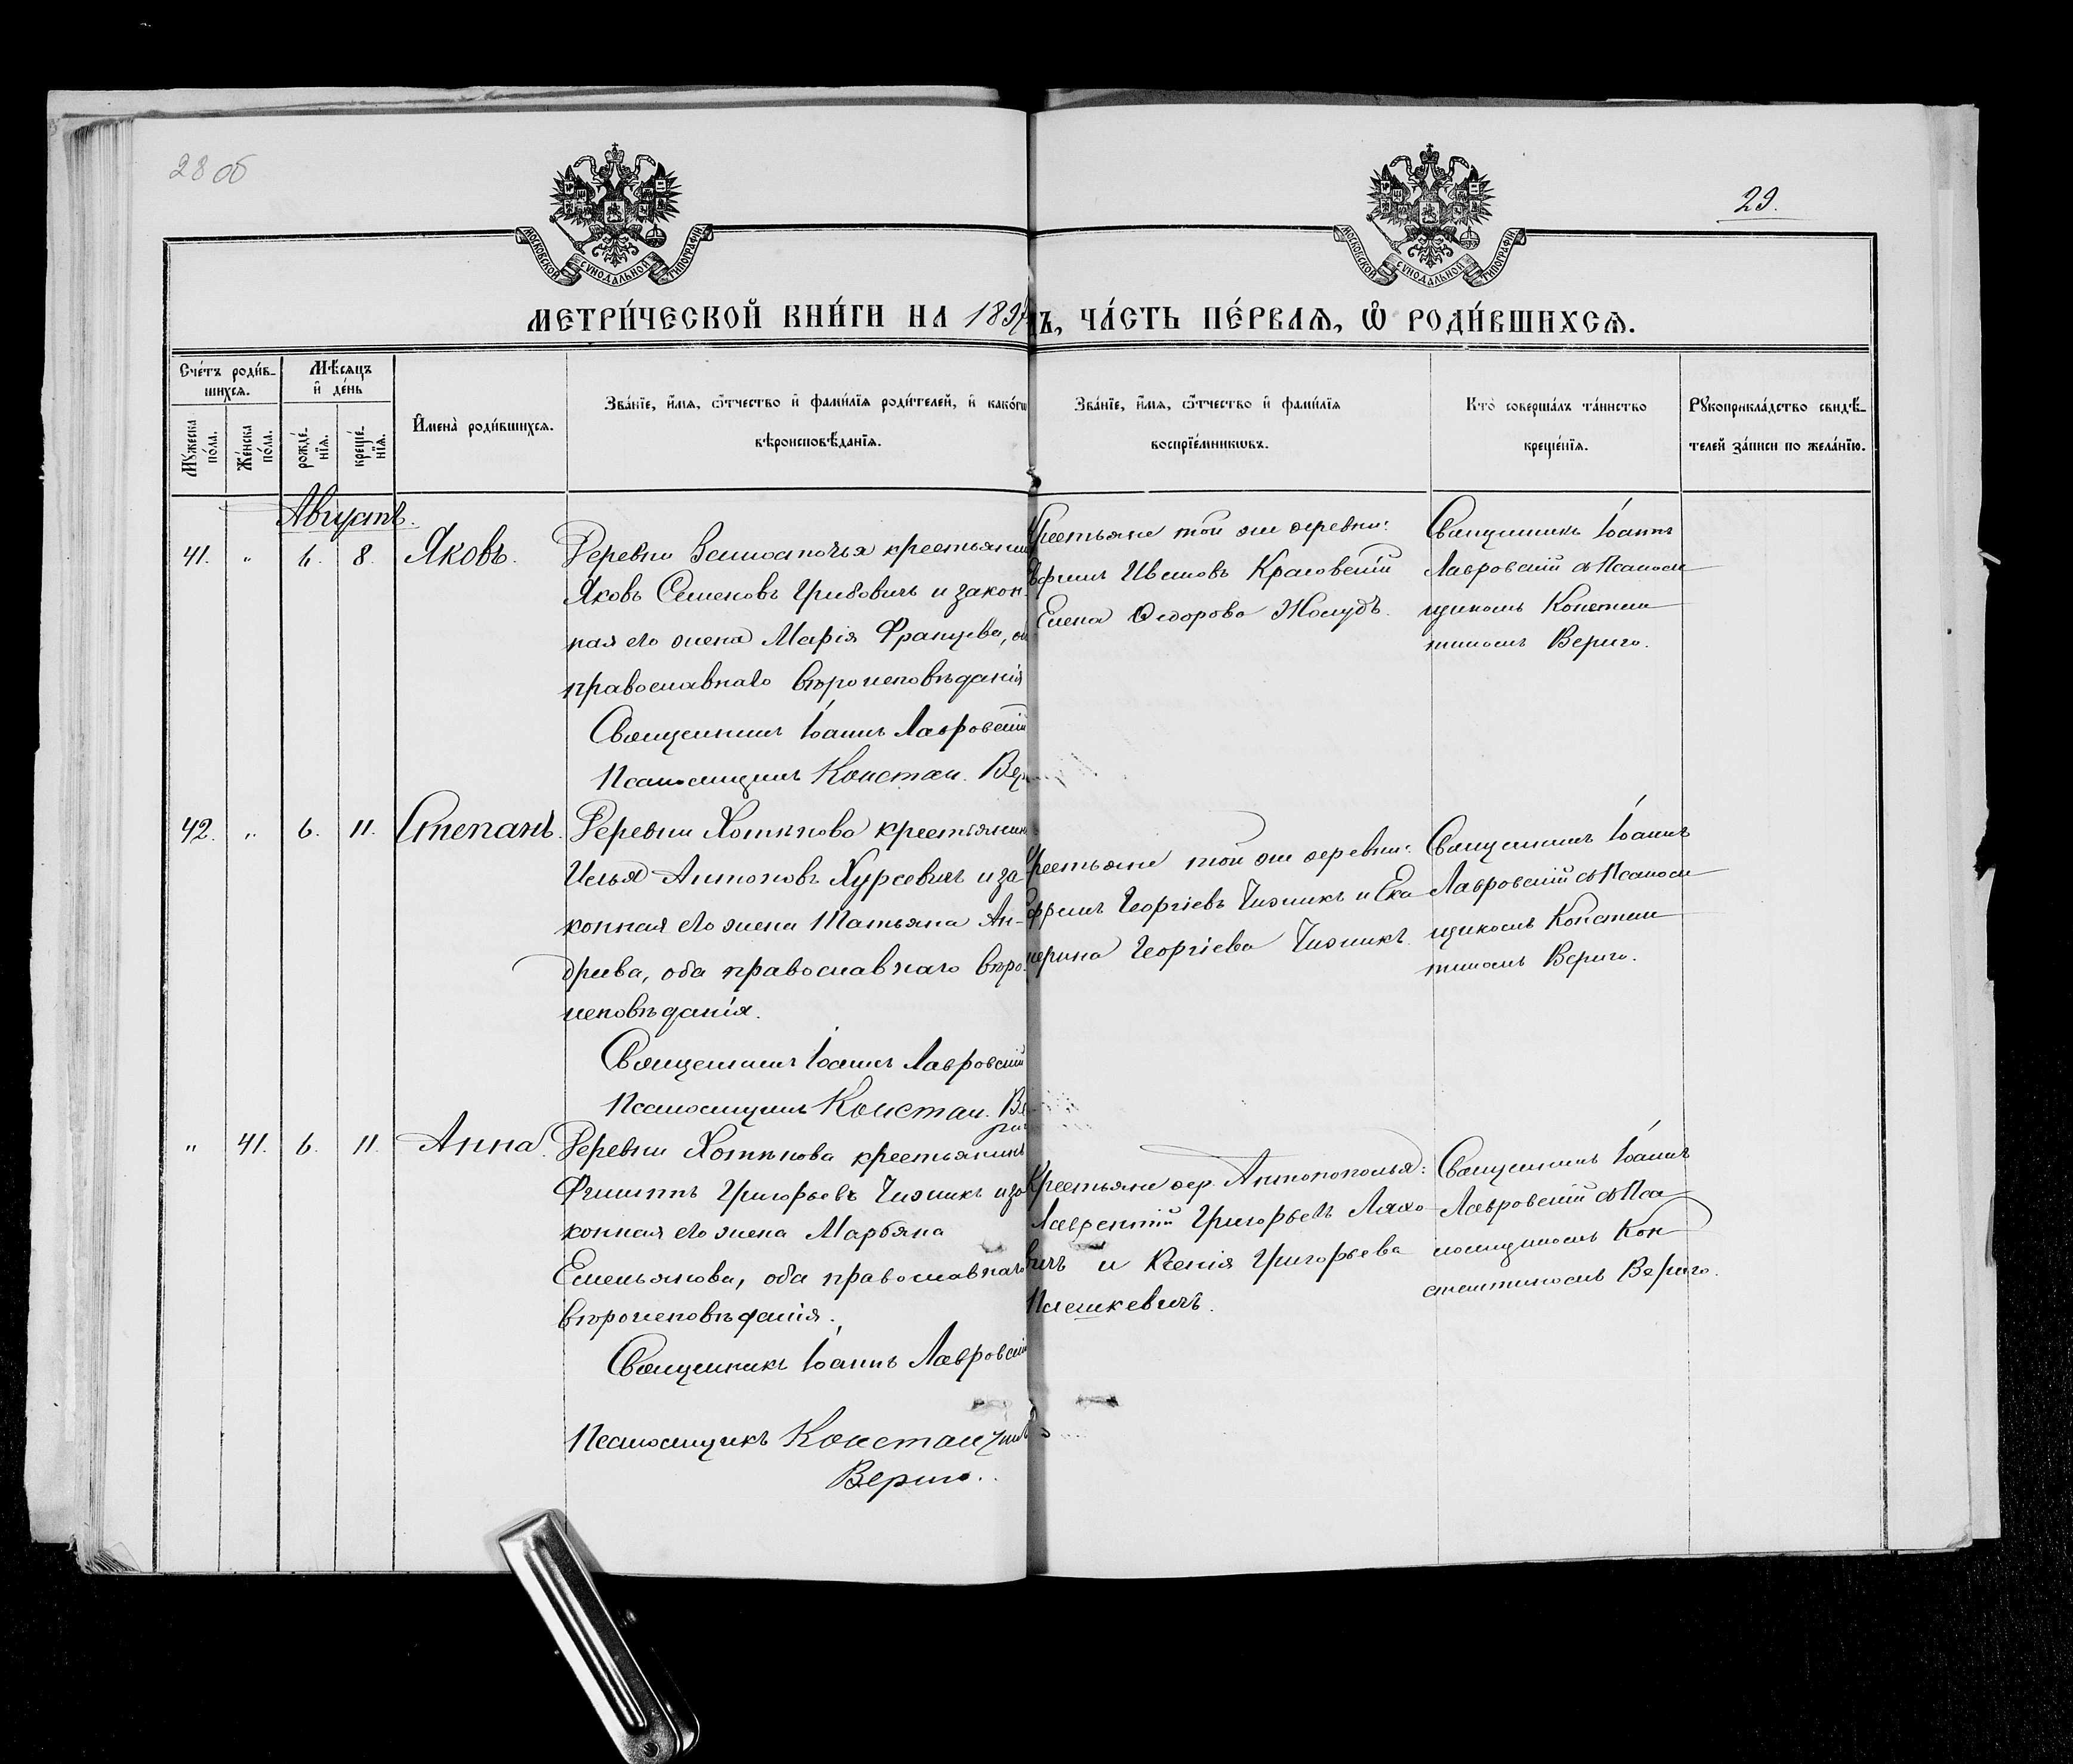 28 об
29.
МОСКОВСКОЙ СѴНОДАЛЬНОЙ ТИПОГРАФІИ
МОСКОВСКОЙ СѴНОДАЛЬНОЙ ТИПОГРАФІИ
МЕТРИ́ЧЕСКОЙ КНИ́ГИ НА 189
Ъ, ЧА́СТЬ ПЕ́РВАѦ, Ѽ РОДИ́ВШИХСѦ.
Сче́тъ роди́в-
шихсѧ.
Мѣ́сѧцъ
и҆ де́нь
Мꙋ́жеска по́ла.
Же́нска по́ла.
рожде́-нїѧ.
креще́-нїѧ.
И҆мена̀ роди́вшихсѧ.
Зва́нїе, и҆́мѧ, ѻ҆́тчество и҆ фами́лїѧ роди́телей, и҆ како́гѡ
вѣроисповѣ́данїѧ.
Зва́нїе, и҆́мѧ, ѻ҆́тчество и҆ фами́лїѧ
воспрїе́мникѡвъ.
Кто̀ соверша́лъ та́инство
креще́нїѧ.
Рꙋкоприкла́дство свидѣ́-
телей за́писи по жела́нїю.
Августъ.
41. " 6. 8. Яковъ.
Деревни крестьянин
Яковъ Семеновъ Грибовичъ и закон-
ная его жена Марія Францева,
православнаго вѣроисповѣданія
Священникъ Іоаннъ Лавровскій
Псаломщикъ Констан. Вер
Крестьяне той же деревни:
Ивановъ Красовскій
Елена Ѳедорова Жолудь.
Священникъ Іоаннъ
Лавровскій съ Псалом
щикомъ Констан
тиномъ Вериго.
42. " 6. 11. Степанъ.
Деревни Хотѣнова крестьянин
Илья Антоновъ Хурсевичъ и за-
конная его жена Татьяна Ан-
дреева, оба православнаго вѣро-
исповѣданія.
Священникъ Іоаннъ Лавровскій
Псаломщикъ Констан. Ве
риг
Крестьяне той же деревни:
Ефремъ Георгіевъ Чижикъ и Ека
терина Георгіева Чижикъ.
Священникъ Іоаннъ
Лавровскій съ Псалом
щикомъ Констан
тиномъ Вериго.
" 41. 6. 11. Анна.
Деревни Хотѣнова крестьянинъ
Филиппъ Григорьевъ Чижикъ и за
конная его жена Марьяна
Емельянова, оба православнаго
вѣроисповѣданія.
Священникъ Іоаннъ Лавровскі
Псаломщикъ Константинъ
Вериго.
Крестьяне дер. Антонополья:
Лаврентій Григорьевъ Ляхо
вичъ и Ксенія Григорьева
Плешкевичъ.
Священникъ Іоаннъ
Лавровскій съ Пса
ломщикомъ Кон
стантиномъ Вериго.